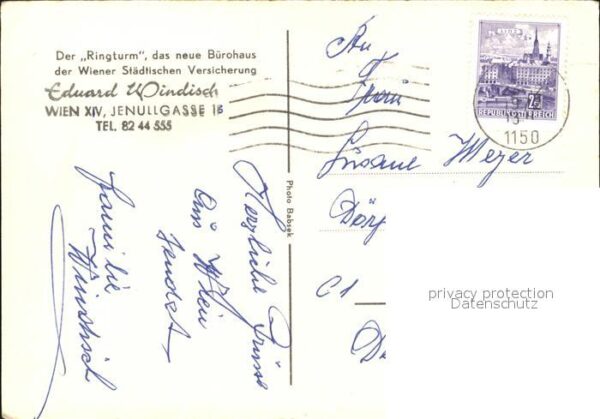 Der „Ringturm", das neue Bürohaus
der Wiener Städtischen Versicherung
Eduard Windisch
WIEN XIV, JENULLGASSE 18
TEL. 82 44 555
Herzliche Grüsse
aus Wien
sendet
Familie
Windisch
Photo Babsek
An
Frau
Susane Meyer
Dörf
C1
LINZ
REPUBLIK ÖSTERREICH
1150
privacy protection
Datenschutz